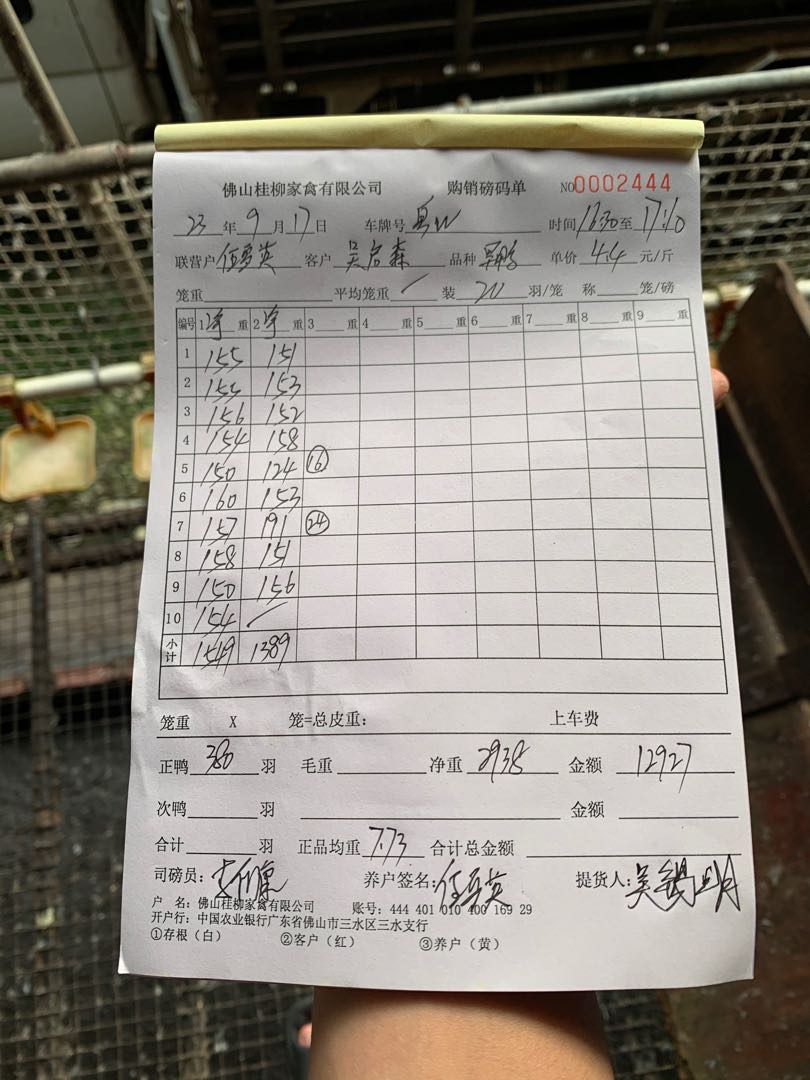 佛山桂柳家禽有限公司 购销磅码单 NO0002444
23年9月17日 车牌号 粤 时间16:30至17:10
联营户 伍 英 客户 吴启森 品种 单价 4.4 元/斤
笼重 平均笼重 / 装 20 羽/笼 称 笼/磅
编号 1 净 重 2 净 重 3 重 4 重 5 重 6 重 7 重 8 重 9 重
1 155 151
2 155 153
3 156 152
4 154 158
5 150 124 ⑯
6 160 153
7 157 191 ㉔
8 158 151
9 150 156
10 154 /
小计 1549 1389
笼重 X 笼=总皮重: 上车费
正鸭 380 羽 毛重 净重 2938 金额 12927
次鸭 羽 金额
合计 羽 正品均重 7.73 合计总金额
司磅员: 养户签名: 伍 英 提货人: 吴锡明
户 名: 佛山桂柳家禽有限公司 账号: 444 401 010 400 169 29
开户行: 中国农业银行广东省佛山市三水区三水支行
①存根(白) ②客户(红) ③养户(黄)